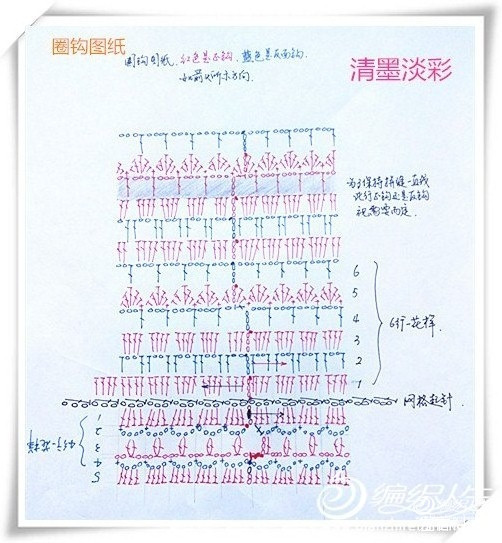 圈钩图纸
圈钩图纸,红色是正钩,蓝色是反面钩.
如箭头所示方向.
清墨淡彩
为了保持拼缝一直线
此行正钩还是反钩
视需要而定.
6
5
4
3
2
1
6行一花样.
网格起针.
2
3
4
5
编织人生